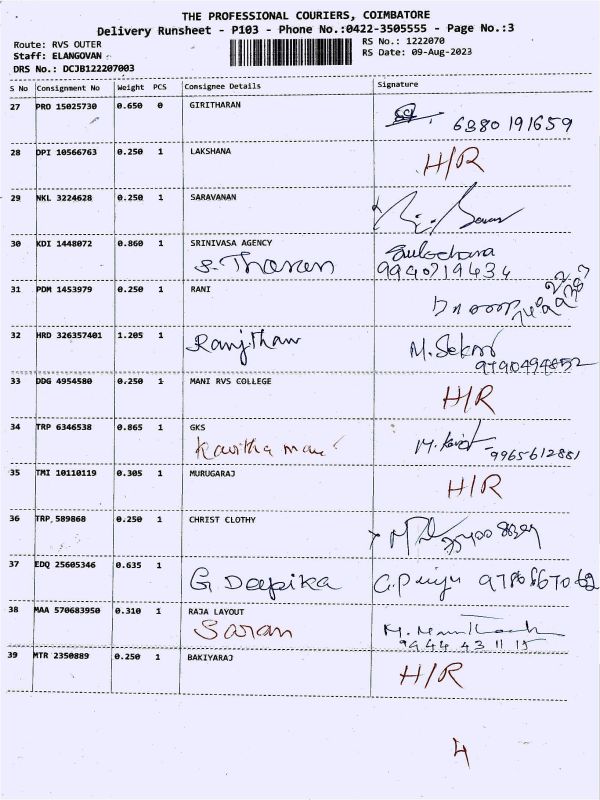 THE PROFESSIONAL COURIERS, COIMBATORE
Delivery Runsheet - P103 - Phone No.:0422-3505555 - Page No.:3
Route: RVS OUTER RS No.: 1222070
Staff: ELANGOVAN RS Date: 09-Aug-2023
DRS No.: DCJB122207003
S No Consignment No Weight PCS Consignee Details Signature
27 PRO 15025730 0.650 0 GIRITHARAN
6380 191659
28 DPI 10566763 0.250 1 LAKSHANA H/R
29 NKL 3224628 0.250 1 SARAVANAN
30 KDI 1448072 0.860 1 SRINIVASA AGENCY Sulochana
S. Tharan 9940719434
31 PDM 1453979 0.250 1 RANI
32 HRD 326357401 1.205 1 Ranjithan M. Sekar
9790494852
33 DDG 4954580 0.250 1 MANI RVS COLLEGE H/R
34 TRP 6346538 0.865 1 GKS
Kavitha mani 9965612881
35 TMI 10110119 0.305 1 MURUGARAJ H/R
36 TRP 589868 0.250 1 CHRIST CLOTHY
37 EDQ 25605346 0.635 1
G. Deepika G. Priya
38 MAA 570683950 0.310 1 RAJA LAYOUT
Saran 9444 43 11 15
39 MTR 2350889 0.250 1 BAKIYARAJ H/R
4